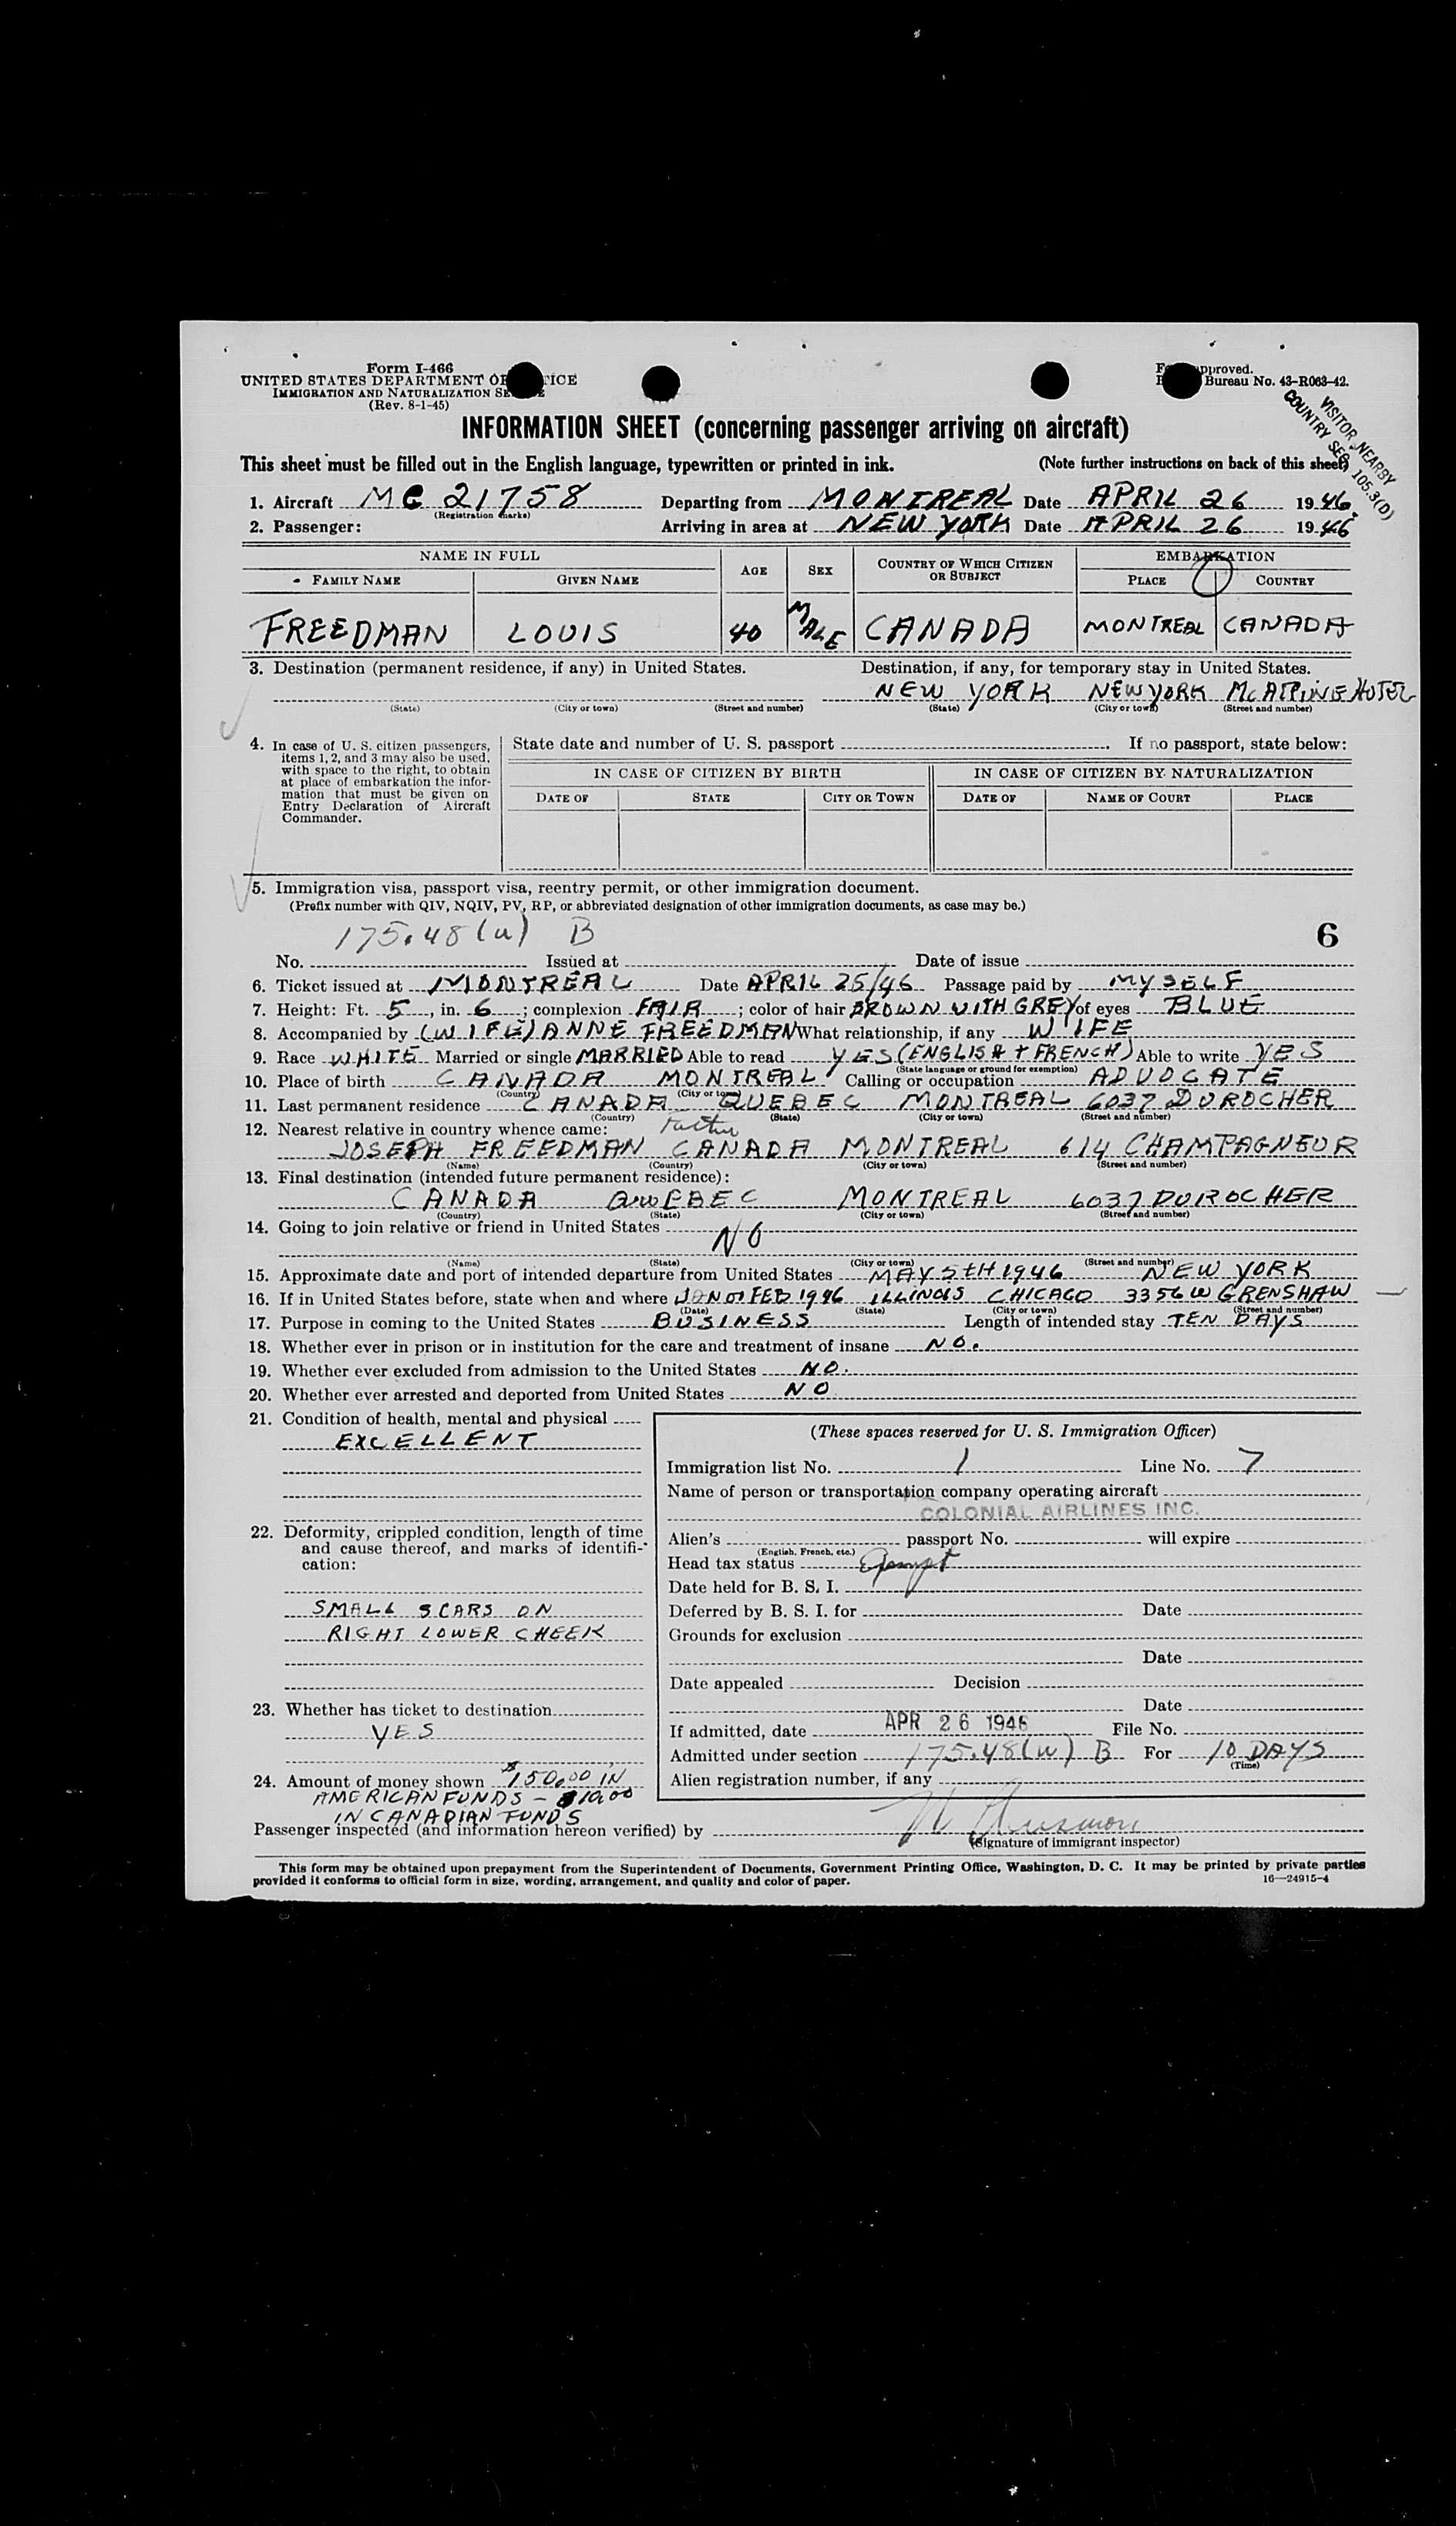 Form I-466
UNITED STATES DEPARTMENT OF TICE
IMMIGRATION AND NATURALIZATION SE E
(Rev. 8-1-45)
pproved.
Bureau No. 43-R063-42.
VISITOR NEARBY
COUNTRY SEC 105.3(D)
INFORMATION SHEET (concerning passenger arriving on aircraft)
This sheet must be filled out in the English language, typewritten or printed in ink. (Note further instructions on back of this sheet)
1. Aircraft MC 21758 Departing from MONTREAL Date APRIL 26 1946.
(Registration marks)
2. Passenger: Arriving in area at NEW YORK Date APRIL 26 1946
NAME IN FULL AGE SEX COUNTRY OF WHICH CITIZEN OR SUBJECT EMBARKATION
FAMILY NAME GIVEN NAME PLACE COUNTRY
FREEDMAN LOUIS 40 MALE CANADA MONTREAL CANADA
3. Destination (permanent residence, if any) in United States. Destination, if any, for temporary stay in United States.
NEW YORK NEW YORK McALPINE HOTEL
(State) (City or town) (Street and number) (State) (City or town) (Street and number)
4. In case of U. S. citizen passengers,
items 1, 2, and 3 may also be used,
with space to the right, to obtain
at place of embarkation the infor-
mation that must be given on
Entry Declaration of Aircraft
Commander.
State date and number of U. S. passport If no passport, state below:
IN CASE OF CITIZEN BY BIRTH IN CASE OF CITIZEN BY NATURALIZATION
DATE OF STATE CITY OR TOWN DATE OF NAME OF COURT PLACE
5. Immigration visa, passport visa, reentry permit, or other immigration document.
(Prefix number with QIV, NQIV, PV, RP, or abbreviated designation of other immigration documents, as case may be.)
175.48(u) B 6
No. Issued at Date of issue
6. Ticket issued at MONTREAL Date APRIL 25/46 Passage paid by MYSELF
7. Height: Ft. 5, in. 6; complexion FAIR; color of hair BROWN WITH GREY of eyes BLUE
8. Accompanied by (WIFE) ANNE FREEDMAN What relationship, if any WIFE
9. Race WHITE Married or single MARRIED Able to read YES (ENGLISH + FRENCH) Able to write YES
(State language or ground for exemption)
10. Place of birth CANADA MONTREAL Calling or occupation ADVOCATE
(Country) (City or town)
11. Last permanent residence CANADA QUEBEC MONTREAL 6037 DUROCHER
(Country) (State) (City or town) (Street and number)
12. Nearest relative in country whence came: Father
JOSEPH FREEDMAN CANADA MONTREAL 614 CHAMPAGNEUR
(Name) (Country) (City or town) (Street and number)
13. Final destination (intended future permanent residence):
CANADA QUEBEC MONTREAL 6037 DUROCHER
(Country) (State) (City or town) (Street and number)
14. Going to join relative or friend in United States NO
(Name) (State) (City or town) (Street and number)
15. Approximate date and port of intended departure from United States MAY 5TH 1946 NEW YORK
16. If in United States before, state when and where FEB 1946 ILLINOIS CHICAGO 3356 W GRENSHAW
(Date) (State) (City or town) (Street and number)
17. Purpose in coming to the United States BUSINESS Length of intended stay TEN DAYS
18. Whether ever in prison or in institution for the care and treatment of insane NO.
19. Whether ever excluded from admission to the United States NO.
20. Whether ever arrested and deported from United States NO
21. Condition of health, mental and physical
EXCELLENT
22. Deformity, crippled condition, length of time
and cause thereof, and marks of identifi-
cation:
SMALL SCARS ON
RIGHT LOWER CHEEK
23. Whether has ticket to destination
YES
24. Amount of money shown $150.00 IN
AMERICAN FUNDS - $10.00
IN CANADIAN FUNDS
(These spaces reserved for U. S. Immigration Officer)
Immigration list No. 1 Line No. 7
Name of person or transportation company operating aircraft
COLONIAL AIRLINES INC.
Alien's passport No. will expire
(English, French, etc.)
Head tax status Exempt
Date held for B. S. I.
Deferred by B. S. I. for Date
Grounds for exclusion
Date
Date appealed Decision
Date
If admitted, date APR 26 1946 File No.
Admitted under section 175.48(u) B For 10 DAYS
(Time)
Alien registration number, if any
Passenger inspected (and information hereon verified) by
(Signature of immigrant inspector)
This form may be obtained upon prepayment from the Superintendent of Documents, Government Printing Office, Washington, D. C. It may be printed by private parties
provided it conforms to official form in size, wording, arrangement, and quality and color of paper. 16—24915-4